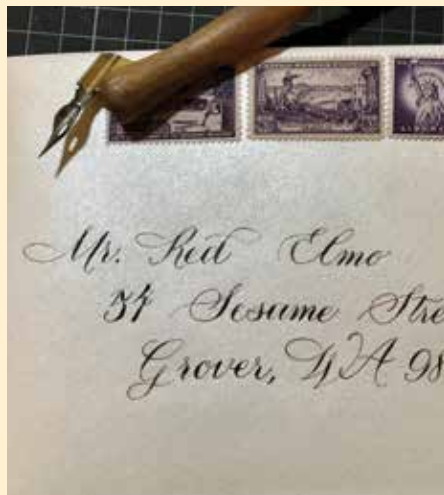 Mr. Red Elmo
Sesame Stre
Grover, WA 98